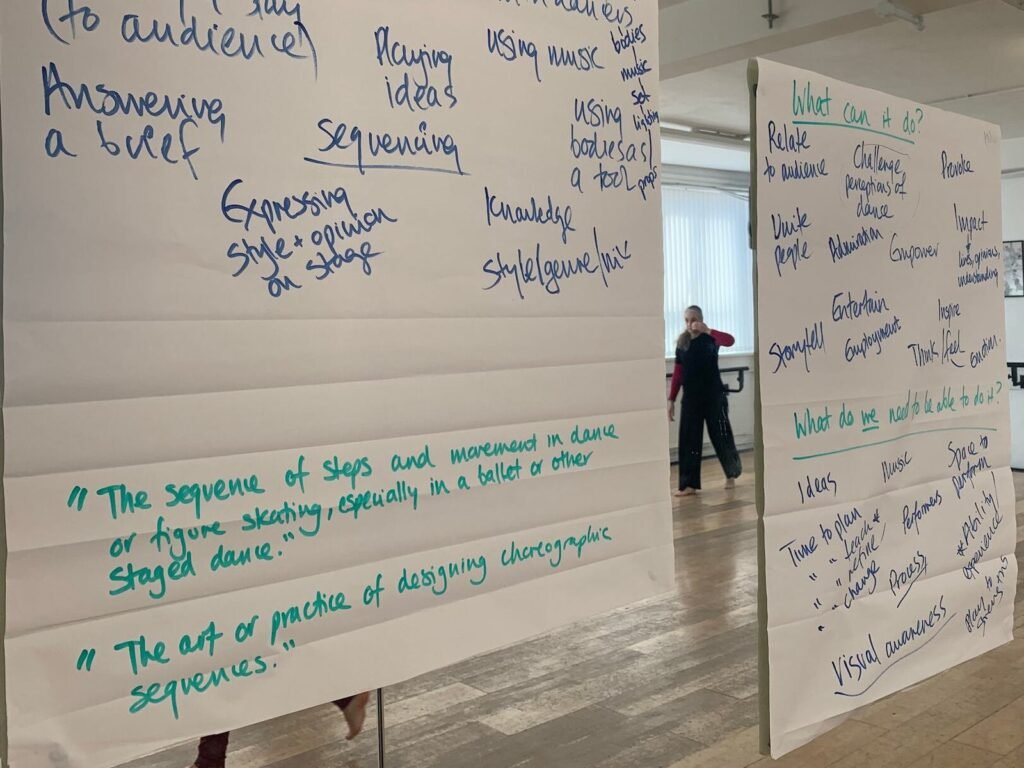 (to audience)
Answering
a brief
Playing
ideas
using music
bodies
music
set
lighting
props
using
bodies as
a tool
Sequencing
Expressing
style + opinion
on stage
Knowledge
style/genre/mix
" The sequence of steps and movement in dance
or figure skating, especially in a ballet or other
staged dance."
" The art or practice of designing choreographic
sequences."
What can it do?
Relate
to audience
Challenge
perceptions of
dance
Provoke
Unite
people
Admiration
Empower
Impact
lives, opinions,
understanding
Entertain
Inspire
Storytell
Employment
Think/feel
emotion.
What do we need to be able to do it?
Ideas
Music
Space to
perform
Time to plan
" " teach
" " refine
" " change
Performers
Process
Ability/
experience
Visual awareness